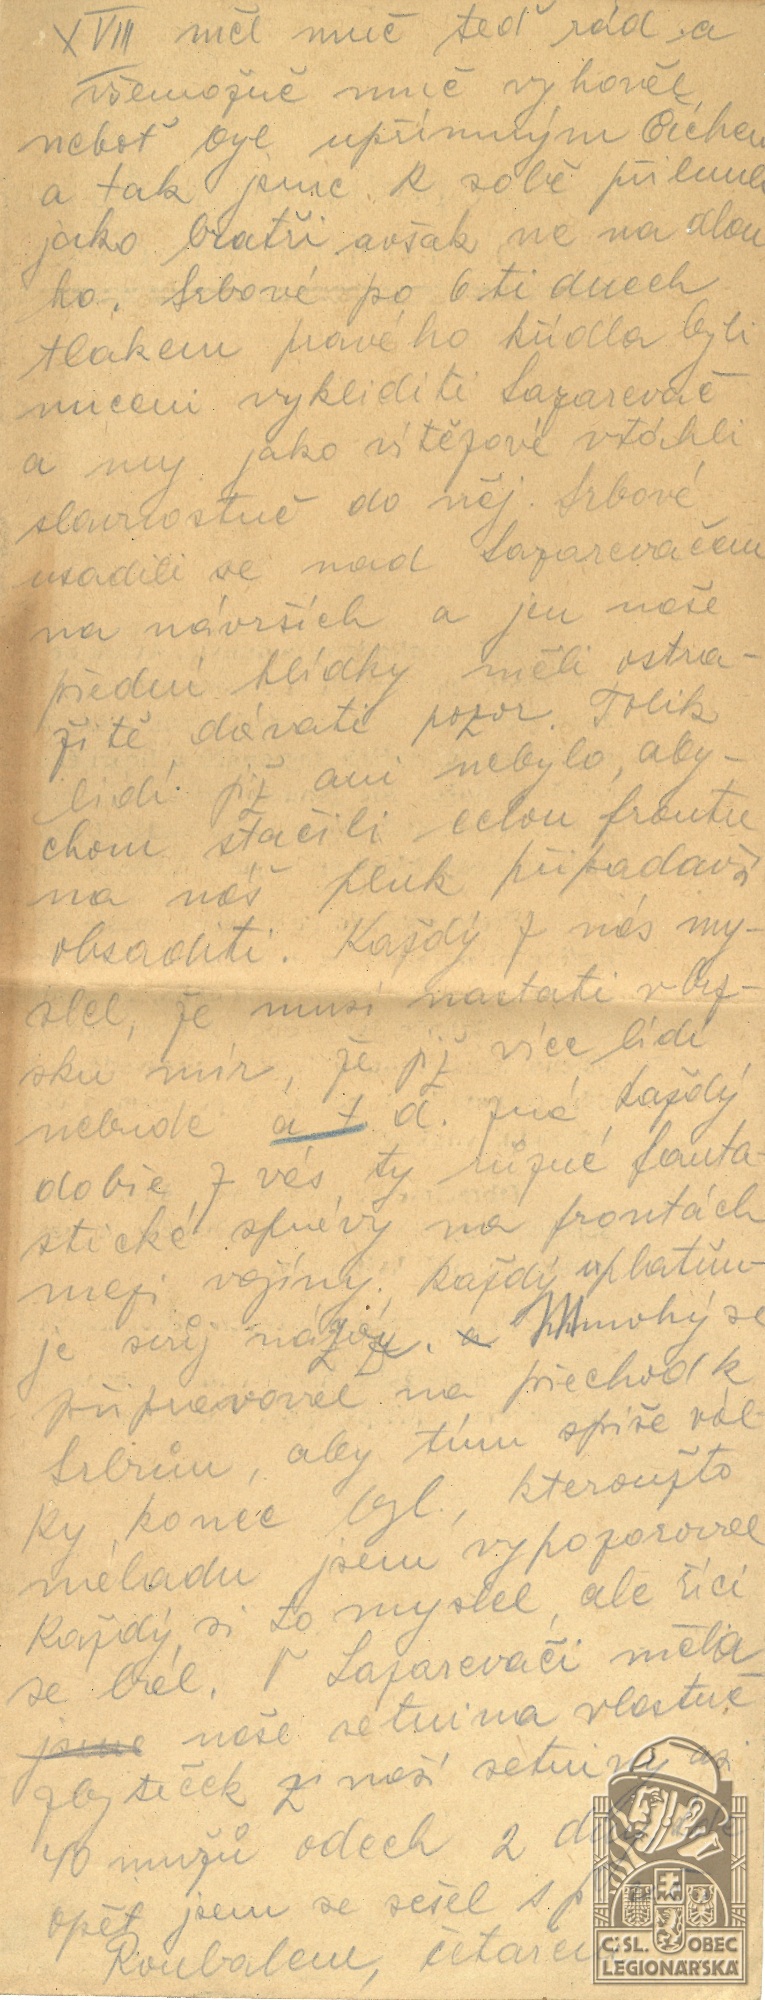 XVIII měl mně teď rád a
všemožně mně vyhověl,
neboť byl upřímným Čechem
a tak jsme k sobě přilnuli
jako bratři avšak ne na dlou
ho. Srbové po 6ti dnech
tlakem pravého křídla byli
nuceni vykliditi Lazarevač
a my jako vítězové vtáhli
slavnostně do něj. Srbové
usadili se nad Lazarevačem
na návrších a jen naše
přední hlídky měli ostra-
žitě dávati pozor. Tolik
lidí již ani nebylo, aby-
chom stačili celou frontu
na náš pluk připadavší
obsaditi. Každý z nás my-
slel, že musí nastati v brz-
sku mír, že již více lidí
nebude a t. d. Zná každý
dobře z vás ty různé fanta-
stické zprávy na frontách
mezi vojíny. Každý uplatňu-
je svůj názor. a Mnohý se
připravoval na přechod k
Srbům, aby tím spíše vál-
ky konec byl, kteroužto
náladu jsem vypozoroval
Každý si to myslel, ale říci
se bál. V Lazarevači měla
jsme naše setnina vlastně
zbyteček z naší setniny asi
40 mužů odech 2 dny
opět jsem se sešel s
Roubalem, četařem
ČSL. OBEC
LEGIONÁŘSKÁ